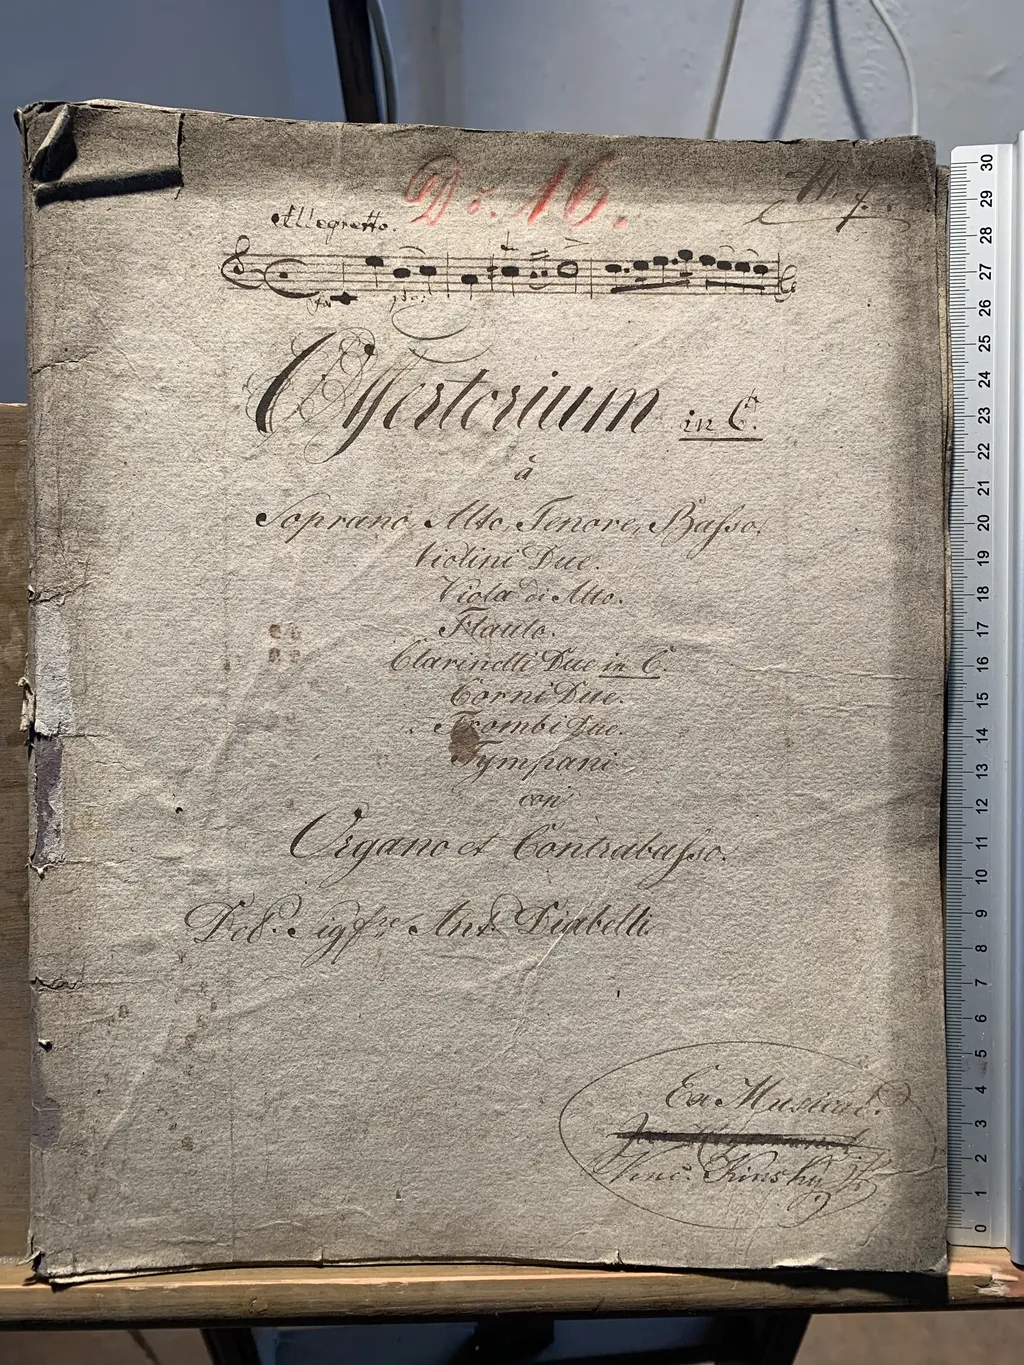 No. 16.
Allegretto.
Offertorium in C.
à
Soprano, Alto, Tenore, Basso.
Violini Due.
Viola di Alto.
Flauto.
Clarinetti Due in C.
Corni Due.
Trombi Due.
Tympani
con
Organo et Contrabasso.
Del Sigre Ant. Diabelli.
Ex Musicae.
Venc. Kinsky
30
29
28
27
26
25
24
23
22
21
20
19
18
17
16
15
14
13
12
11
10
9
8
7
6
5
4
3
2
1
0